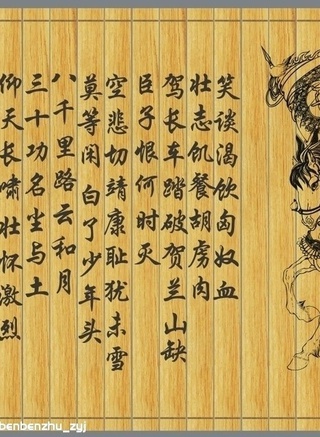 仰天长啸壮怀激烈
三十功名尘与土
八千里路云和月
莫等闲白了少年头
空悲切靖康耻犹未雪
臣子恨何时灭
驾长车踏破贺兰山缺
壮志饥餐胡虏肉
笑谈渴饮匈奴血
benbenzhu_zyj